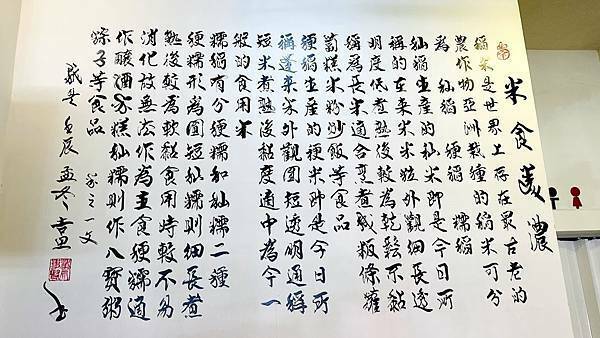 米食美濃
稻米是世界上存在最古老的
農作物亞洲栽種的稻米可分
為秈稻粳稻糯稻
秈稻生產的秈米即是今日所
稱的在來米米粒外觀細長透
明度低煮熟後較為乾鬆不黏
稱為長米適合烹煮或粄條蘿
蔔糕米粉炒飯等食品
粳稻生產的粳米即是今日所
稱蓬萊米外觀圓短透明通稱
短米煮熟後黏度適中為今一
般的食用米
糯稻有分粳糯和秈糯二種
粳糯形為圓短秈糯則細長煮
熟後較為軟黏食用時較不易
消化故無法作為主食粳糯通
作釀酒米糕秈糯則作八寶粥
粽子等食品
歲次壬辰孟冬